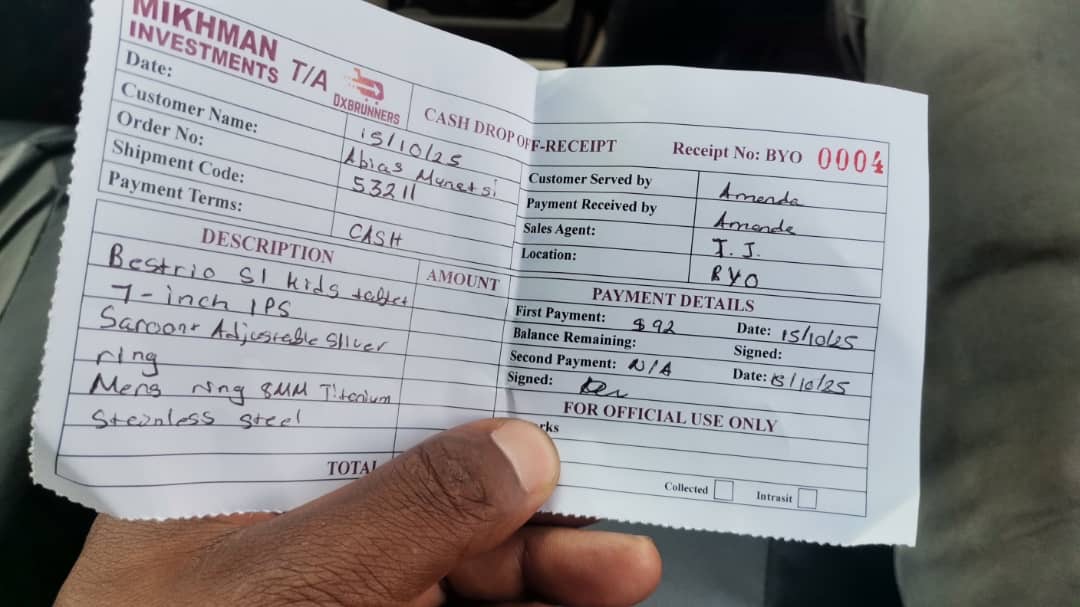 MIKHMAN
INVESTMENTS T/A
OXBRUNNERS
CASH DROP OFF-RECEIPT
Receipt No: BYO 0004
Date: 15/10/25
Customer Name: Abias Munetsi
Order No: 53211
Shipment Code:
Payment Terms: CASH
Customer Served by Amanda
Payment Received by Amanda
Sales Agent: I. J.
Location: BYO
DESCRIPTION AMOUNT
Bestrio S1 kids tablet
7-inch IPS
Adjustable Sliver
ring
Mens ring 8MM Titanium
Stainless steel
TOTAL
PAYMENT DETAILS
First Payment: $92 Date: 15/10/25
Balance Remaining: Signed:
Second Payment: N/A Date: 15/10/25
Signed:
FOR OFFICIAL USE ONLY
rks
Collected Intrasit